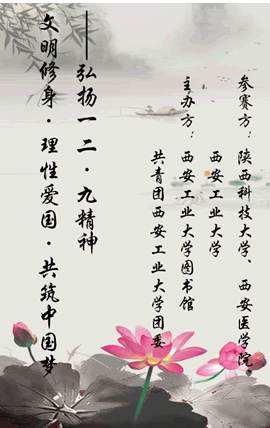 文明修身·理性爱国·共筑中国梦
——弘扬一二·九精神
参赛方：陕西科技大学、西安医学院、
西安工业大学
主办方：西安工业大学图书馆
共青团西安工业大学团委